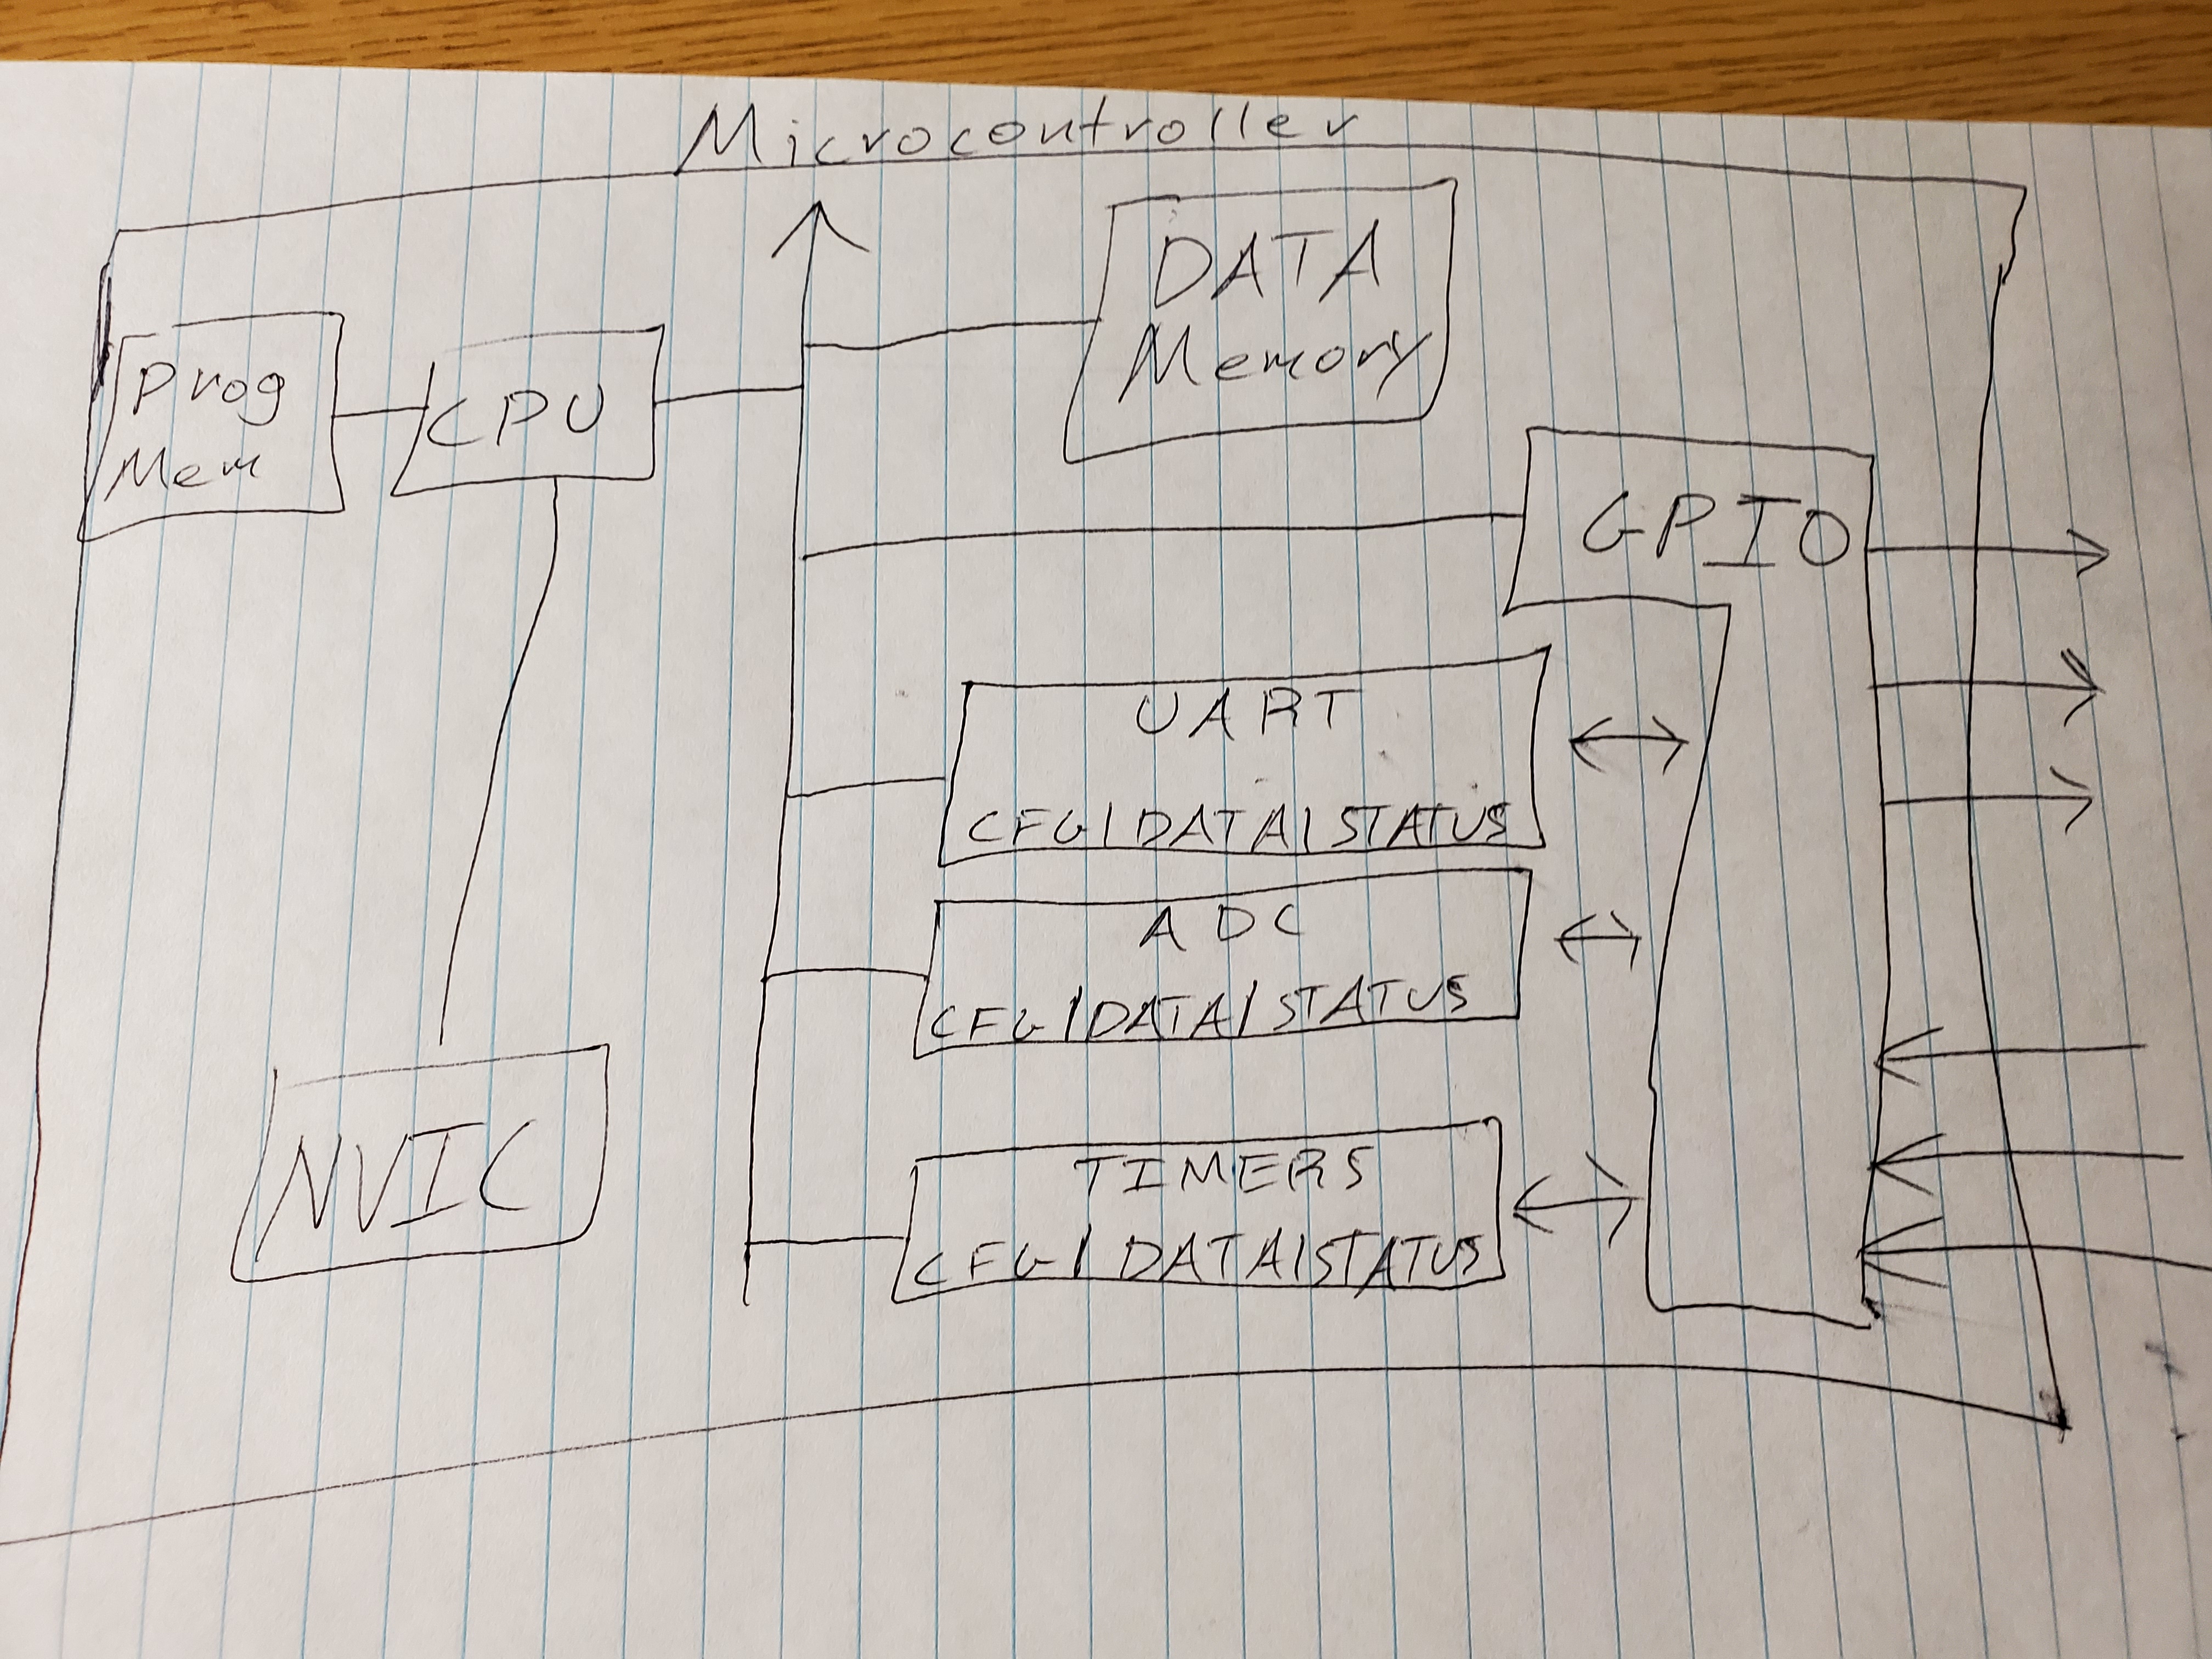 Microcontroller
DATA
Memory
Prog
Mem
CPU
GPIO
UART
CFG|DATA|STATUS
ADC
CFG|DATA|STATUS
NVIC
TIMERS
CFG|DATA|STATUS